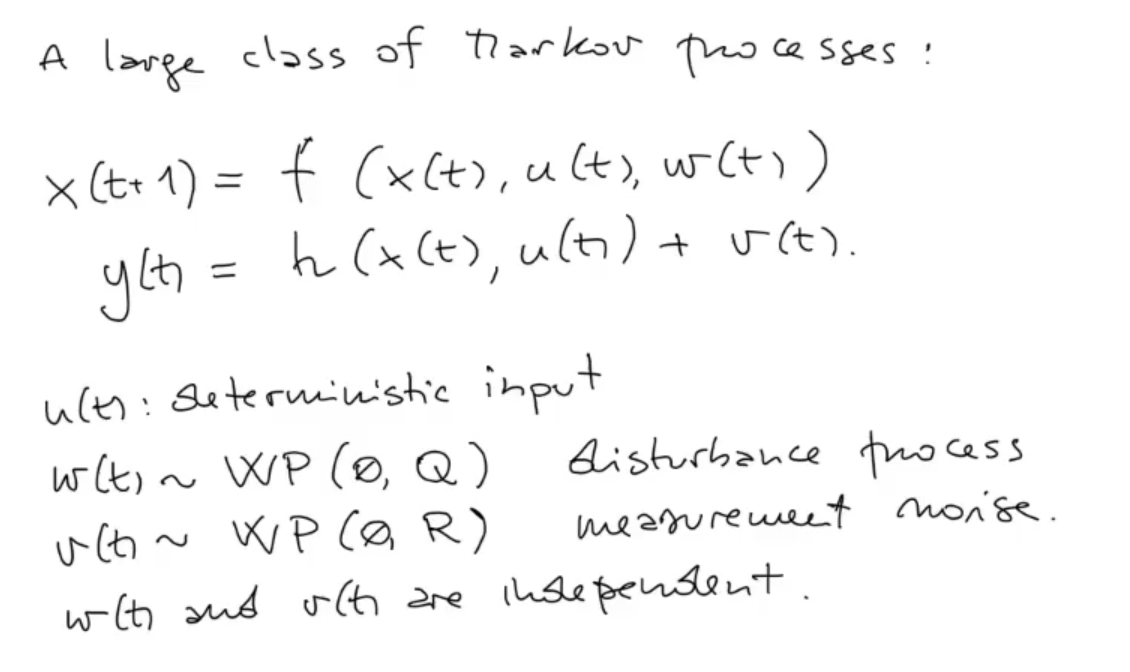 A large class of Markov processes:
x(t+1) = f (x(t), u(t), w(t))
y(t) = h (x(t), u(t)) + v(t).
u(t): deterministic input
w(t) ~ WP (0, Q) disturbance process
v(t) ~ WP (0, R) measurement noise.
w(t) and v(t) are independent.